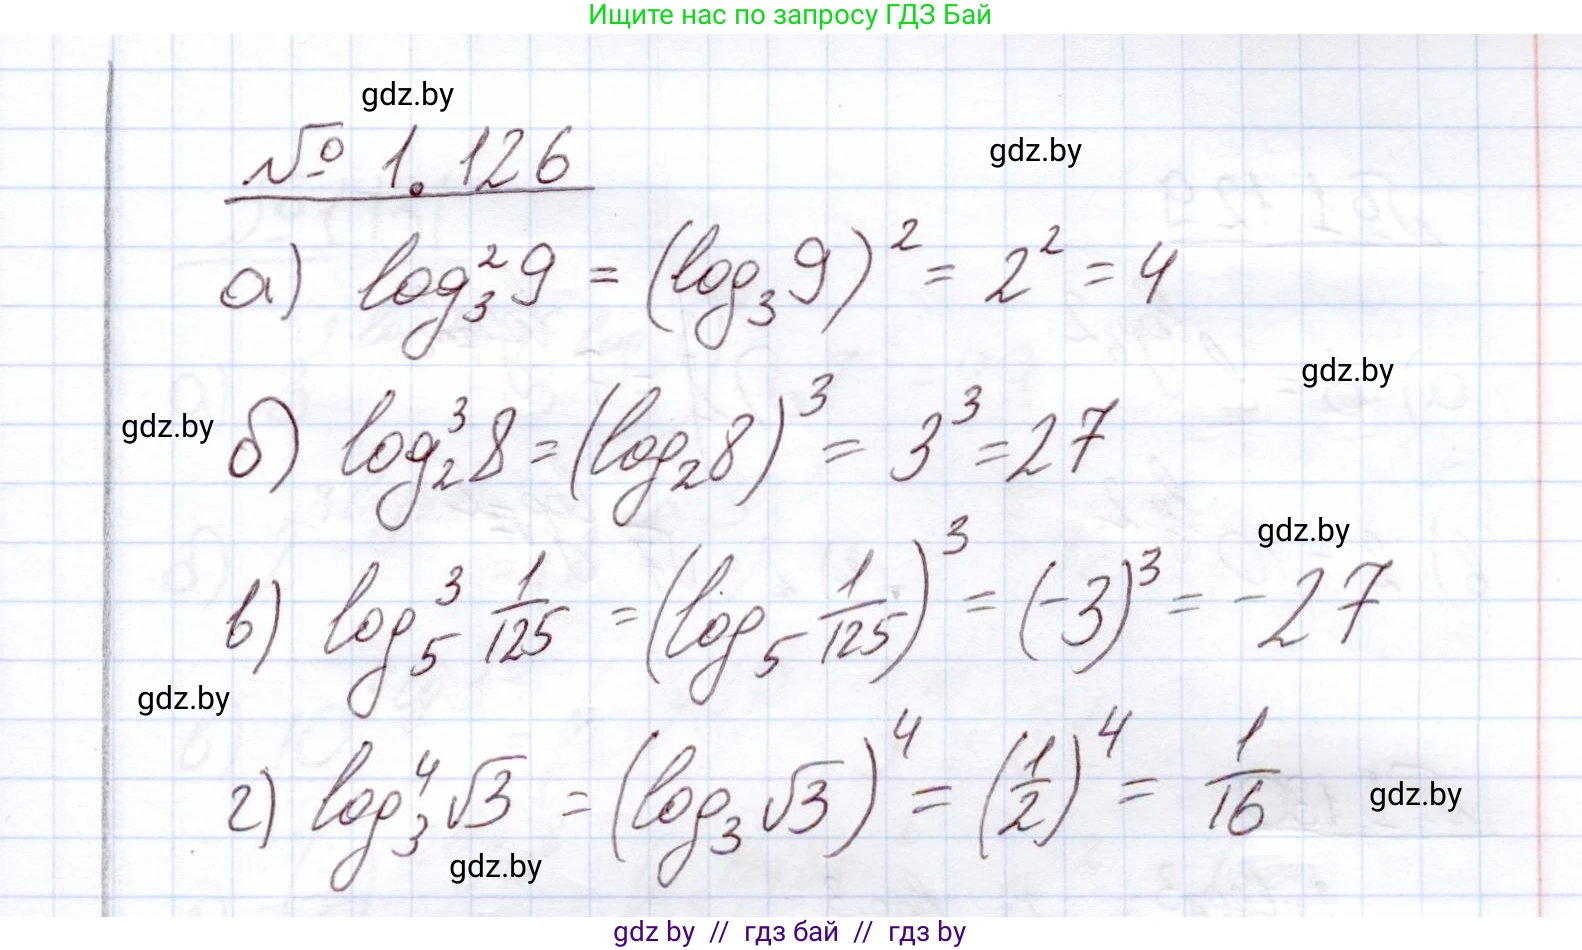 Ищите нас по запросу ГДЗ Бай
gdz.by
№ 1.126
gdz.by
а) log₃²9 = (log₃9)² = 2² = 4
gdz.by
gdz.by
б) log₂³8 = (log₂8)³ = 3³ = 27
gdz.by
в) log₅³ 1/125 = (log₅ 1/125)³ = (-3)³ = -27
gdz.by
г) log₃⁴√3 = (log₃√3)⁴ = (1/2)⁴ = 1/16
gdz.by
gdz.by
gdz by // гдз бай // гдз by